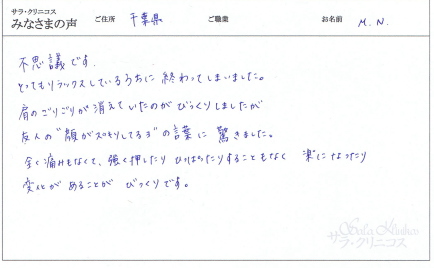 サラ・クリニコス
みなさまの声 ご住所 千葉県 ご職業 お名前 M.N.
不思議です。
とってもリラックスしているうちに 終わってしまいました。
肩のごりごりが消えていたのがびっくりしましたが
友人の"顔がスッキリしてるヨ"の言葉に 驚きました。
全く痛みもなくて、強く押したり ひっぱったりすることもなく 楽になったり
変化が あることが びっくりです。
Sala Klinikos
サラ・クリニコス